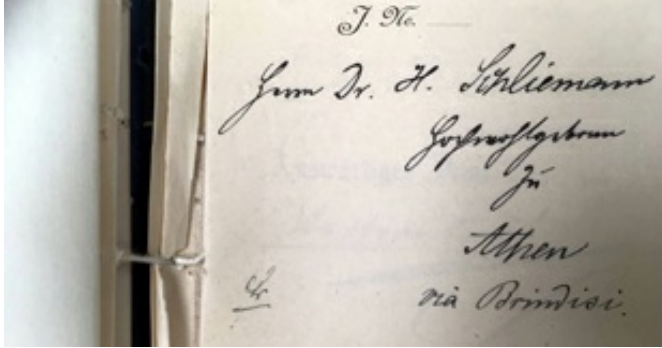 J. No.
Herrn Dr. H. Schliemann
Hochwohlgeboren
zu
Athen
via Brindisi.